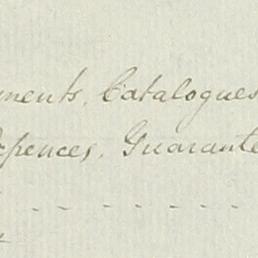 ments, Catalogues
xpences, Guarante
- - - - - - -